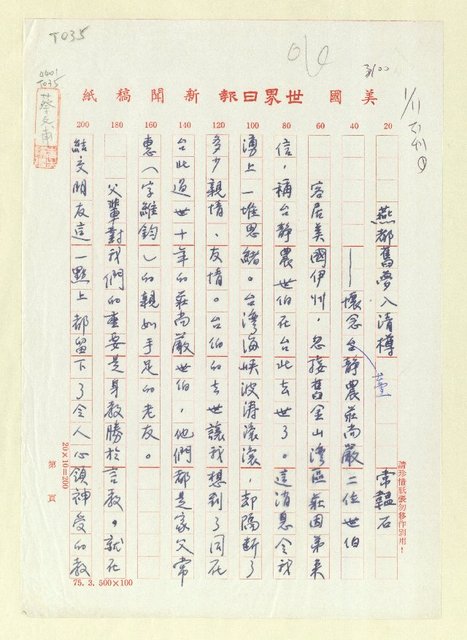 T035
3/00
0001
T035
蔡文甫
美國世界日報新聞稿紙
1/11可刊①
20 40 60 80 100 120 140 160 180 200
燕都舊夢入清樽
——懷念台靜農莊尚嚴二位世伯
常韞石
客居美國伊州，忽接舊金山灣區莊因弟來
信，稱台靜農世伯在台北去世了。這消息令我
湧上一堆思緒。台灣海峽波濤滾滾，却隔斷了
多少親情、友情。台伯的去世讓我想到了同在
台北過世十年的莊尚嚴世伯，他們都是家父常
惠（字維鈞）的親如手足的老友。
父輩對我們的重要是身教勝於言教。就在
結交朋友這一點上都留下了令人心領神受的教
請珍惜紙張勿移作別用！
第 頁
20×10=200
75. 3. 500×100